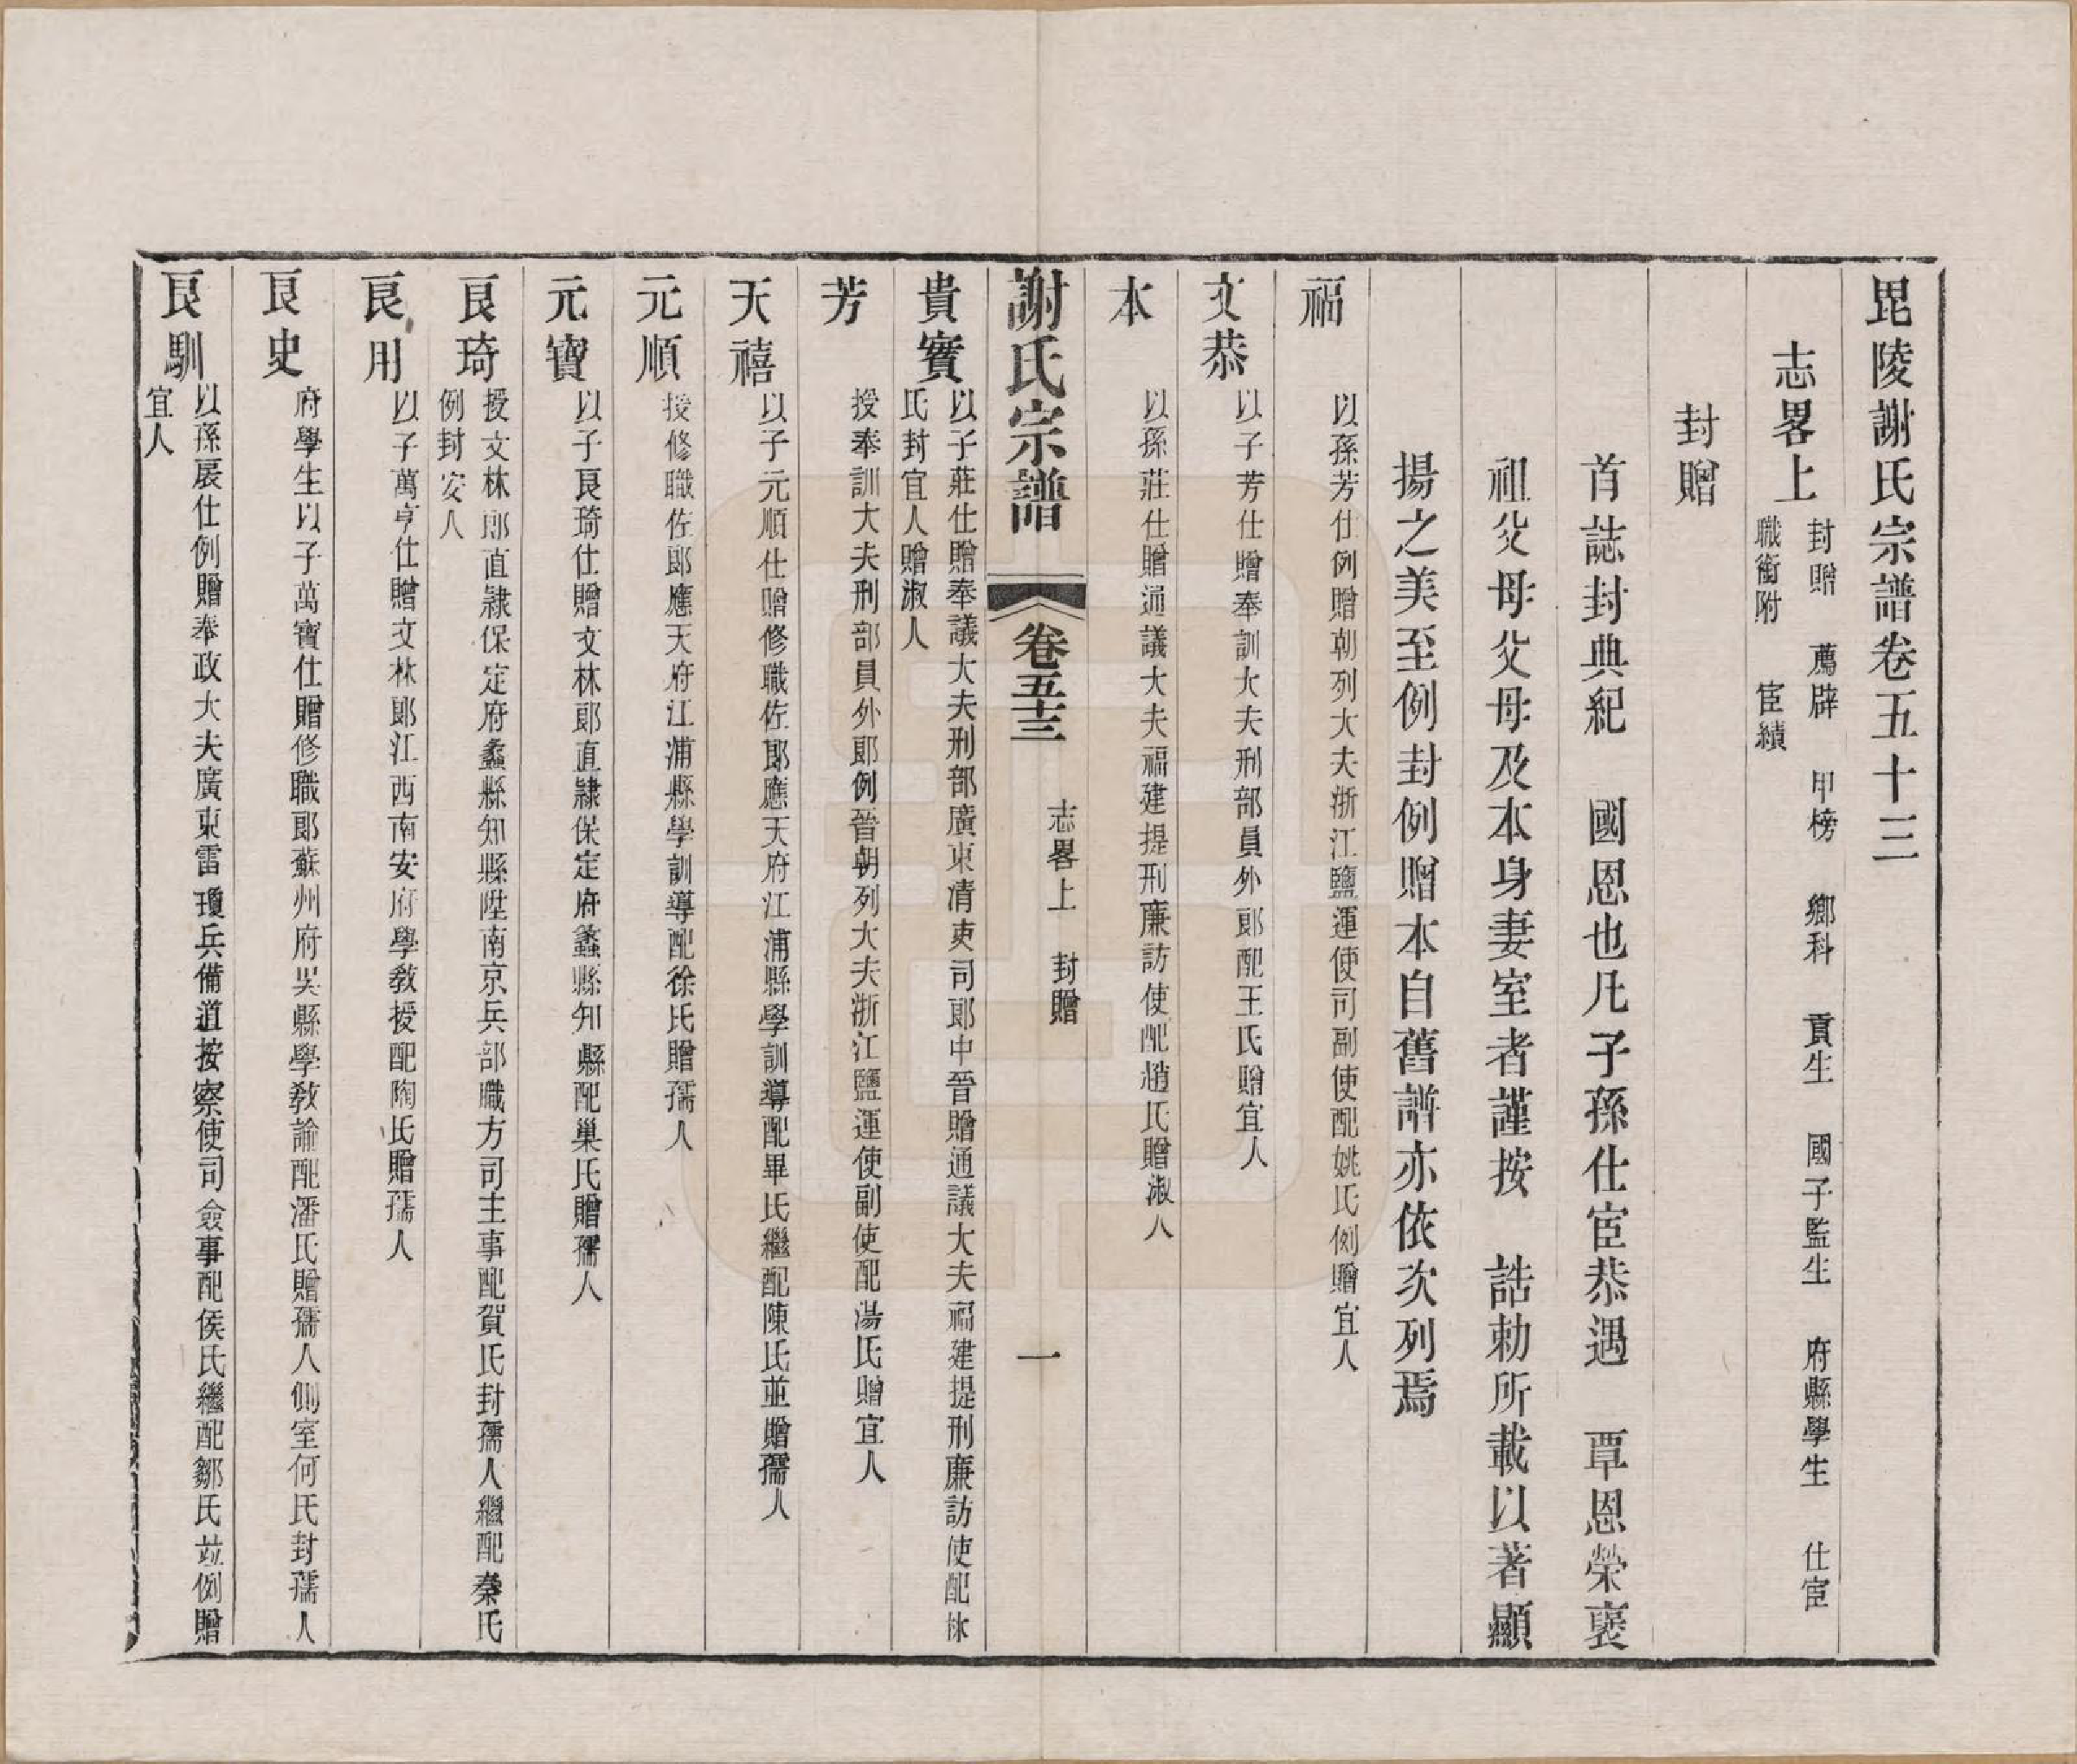 毘陵謝氏宗譜卷五十三
志畧上
封贈　薦辟　甲榜　鄉科　貢生　國子監生　府縣學生　仕宦
職銜附　宦績
封贈
首誌封典紀　國恩也凡子孫仕宦恭遇　覃恩榮褒
祖父母父母及本身妻室者謹按　誥勅所載以著顯
揚之美至例封例贈本自舊譜亦依次列焉
福　以孫芳仕例贈朝列大夫浙江鹽運使司副使配姚氏例贈宜人
文恭　以子芳仕贈奉訓大夫刑部員外郎配王氏贈宜人
本　以孫莊仕贈通議大夫福建提刑廉訪使配趙氏贈淑人
謝氏宗譜　卷五十三　志畧上　封贈　一
貴實　以子莊仕贈奉議大夫刑部廣東清吏司郎中晉贈通議大夫福建提刑廉訪使配林
氏封宜人贈淑人
芳　授奉訓大夫刑部員外郎例晉朝列大夫浙江鹽運使副使配湯氏贈宜人
天禧　以子元順仕贈修職佐郎應天府江浦縣學訓導配畢氏繼配陳氏並贈孺人
元順　授修職佐郎應天府江浦縣學訓導配徐氏贈孺人
元寶　以子良琦仕贈文林郎直隷保定府蠡縣知縣配巢氏贈孺人
良琦　授文林郎直隷保定府蠡縣知縣陞南京兵部職方司主事配賀氏封孺人繼配秦氏
例封安人
良用　以子萬亨仕贈文林郎江西南安府學敎授配陶氏贈孺人
良史　府學生以子萬實仕贈修職郎蘇州府吳縣學敎諭配潘氏贈孺人側室何氏封孺人
良馴　以孫展仕例贈奉政大夫廣東雷瓊兵備道按察使司僉事配侯氏繼配鄒氏竝例贈
宜人